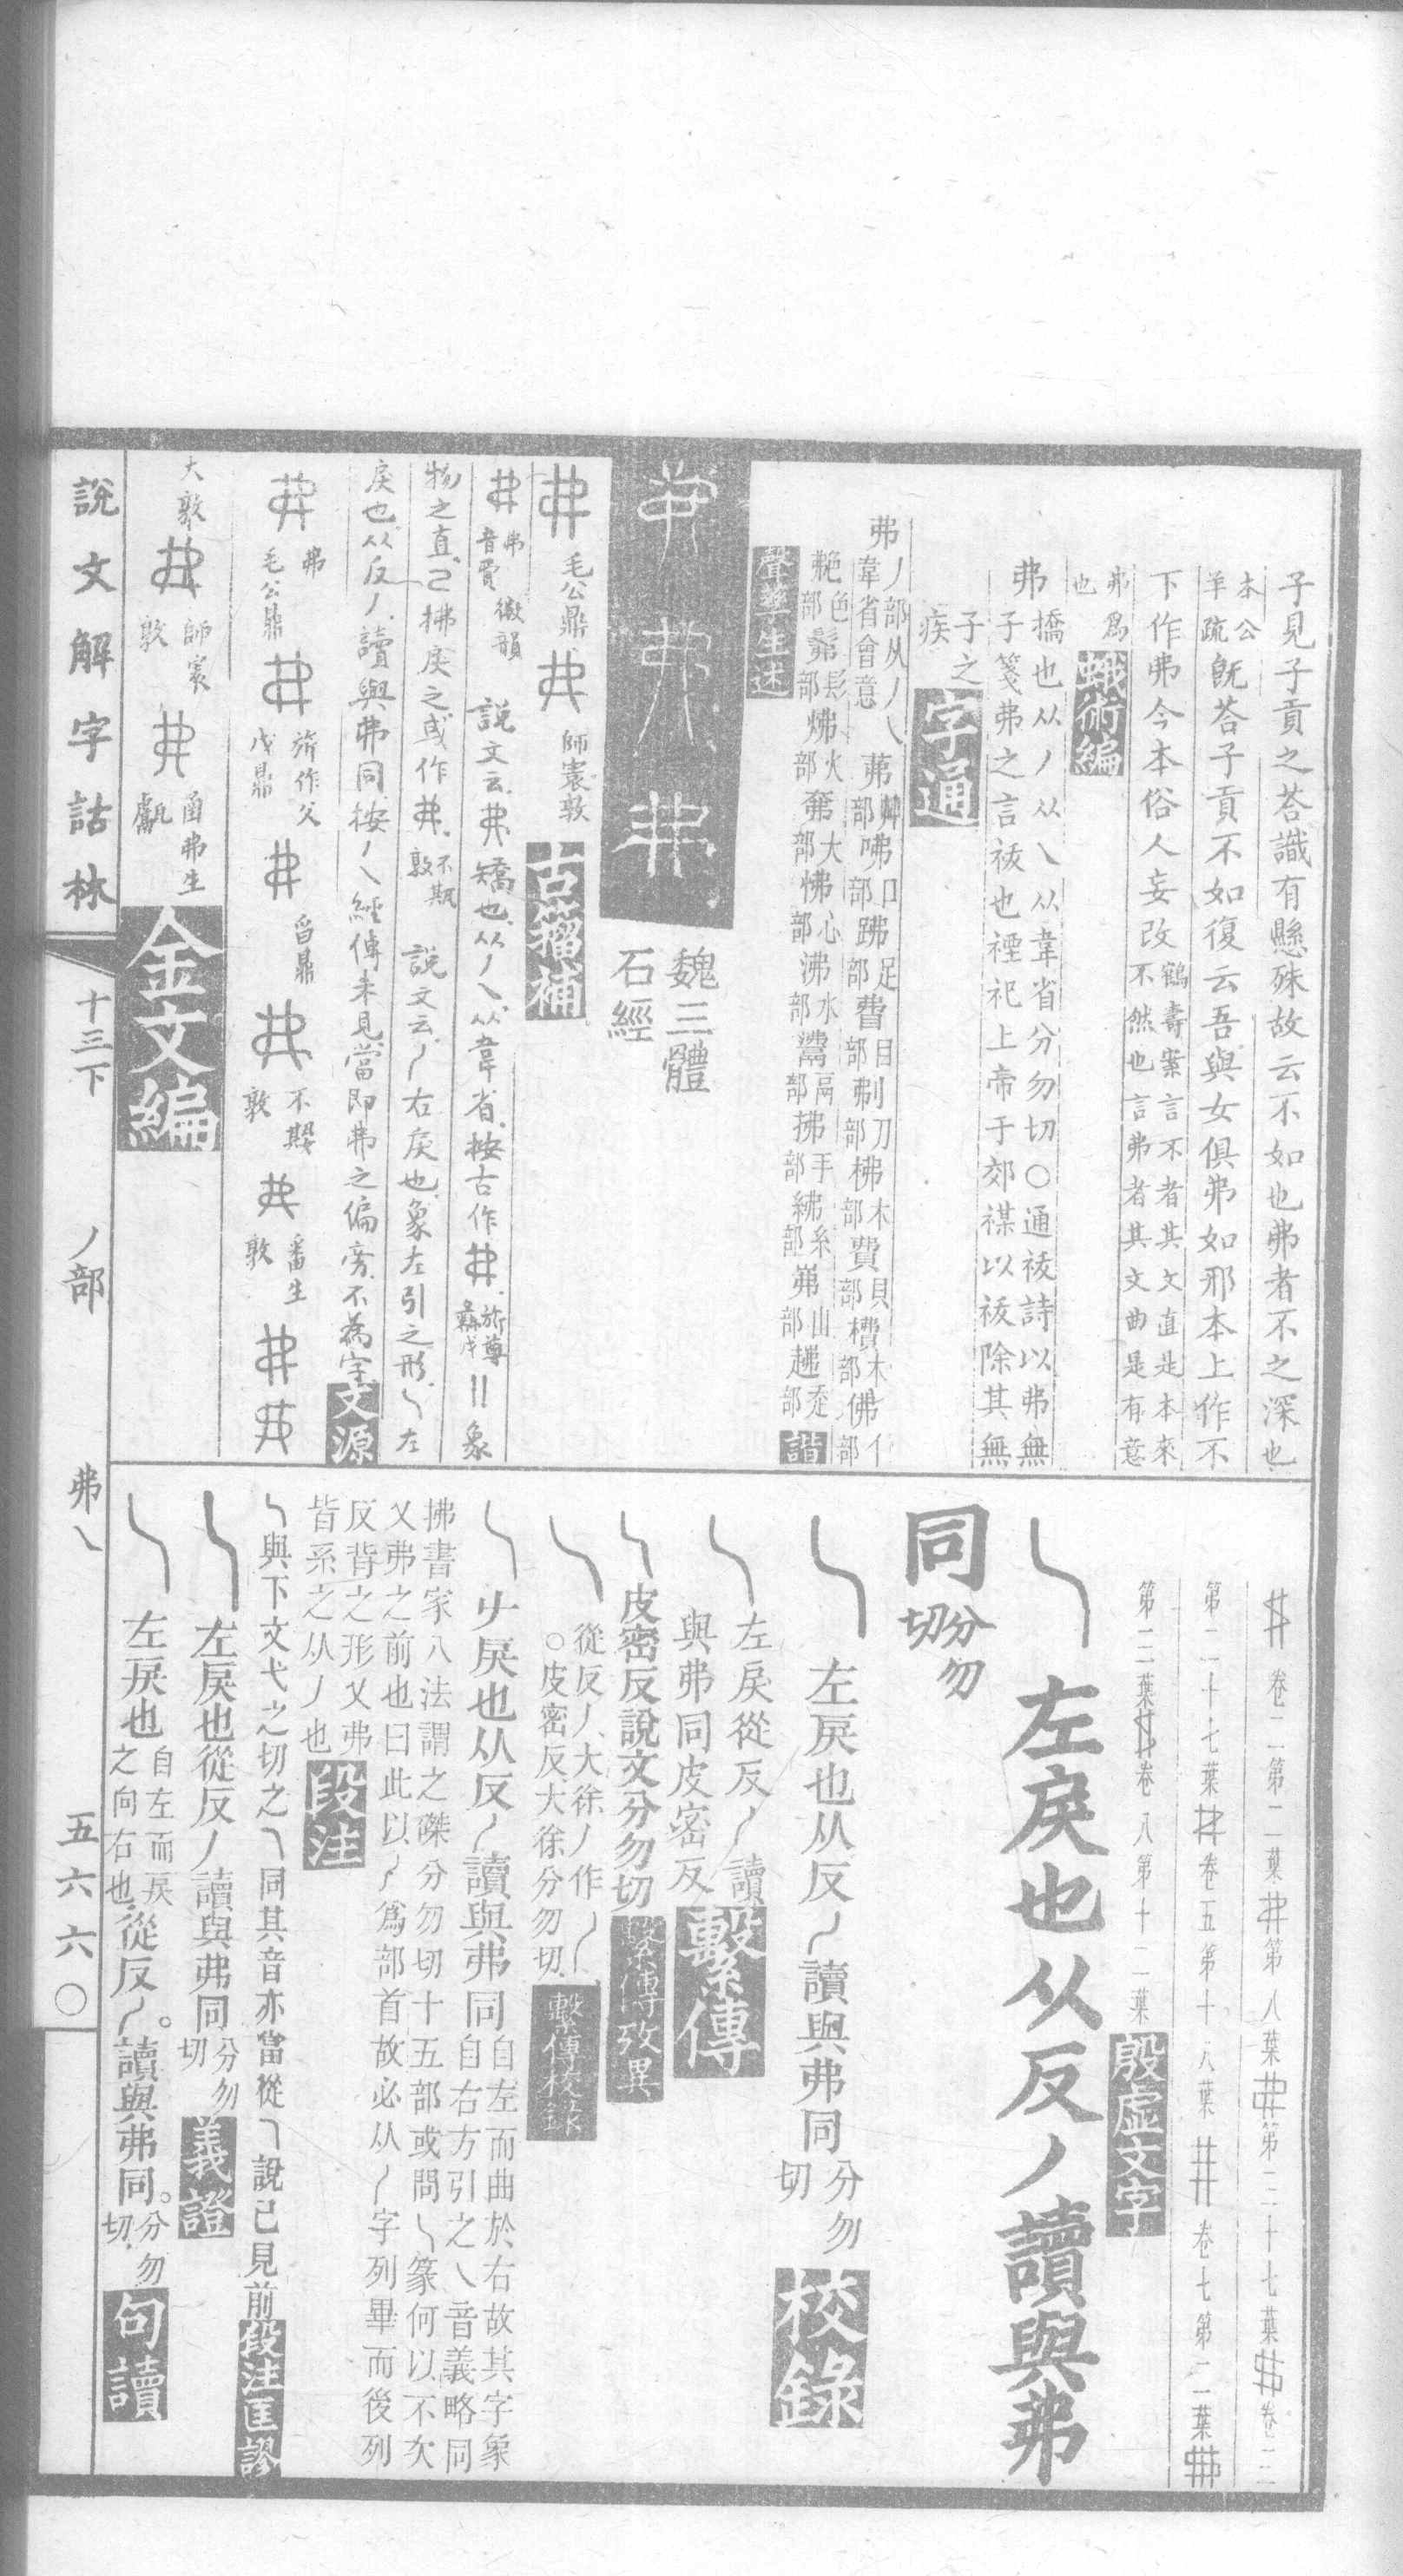 子見子貢之荅識有懸殊故云不如也弗者不之深也
本公羊疏旣荅子貢不如復云吾與女俱弗如邢本上作不
下作弗今本俗人妄改鶴壽案言不者其文直是本來不然也言弗者其文曲是有意
弗爲也蛾術編
弗撟也从丿从乀从韋省分勿切○通祓詩以弗無
子箋弗之言祓也禋祀上帝于郊禖以祓除其無
子之疾字通
弗丿部从丿乀韋省會意茀艸部咈口部跰足部𥄱目部刜刀部柫木部費貝部櫕木部佛亻部
艴色部髴髟部炥火部奰大部怫心部沸水部鬻鬲部拂手部紼糸部岪山部趉走部諧
聲譜生述
魏三體石經
毛公鼎 師寰敦 古籀補
弗音費微韻 說文云弗矯也从丿乀从韋省按古作 旅尊 象
物之直己拂戾之或作 不㠱敦 說文云丿右戾也象左引之形乀左
戾也从反丿讀與弗同按丿乀經傳未見當即弗之偏旁不爲字文源
弗毛公鼎 旂作父戊鼎 曶鼎 不㠱敦 番生敦
大敦 師寰敦 酉弗生甗 金文編
卷一第二葉 第八葉 第二十七葉 卷二
第二十七葉 卷五第十八葉 卷七第二葉
第二葉 卷八第十二葉 殷虛文字
乀 左戾也从反丿讀與弗
同分勿切
乀 左戾也从反丿讀與弗同分勿切校錄
乀 左戾從反丿讀與弗同皮密反繫傳
乀 皮密反說文分勿切繫傳攷異
乀 從反丿大徐丿作丿○皮密反大徐分勿切繫傳校錄
乀 𠂇戾也从反丿讀與弗同自左而曲於右故其字象自右方引之乀音義略同
拂書家八法謂之磔分勿切十五部或問乀篆何以不次
又弗之前也曰此以丿爲部首故必从丿字列畢而後列
反背之形又弗皆系之从丿也段注
乀與下文弋之切之乁同其音亦當從乁說已見前段注匡謬
乀 左戾也從反丿讀與弗同分勿切義證
乀 左戾也自左而戾之向右也從反丿。讀與弗同。分勿切句讀
說文解字詁林 十三下 丿部 弗乀 五六六〇